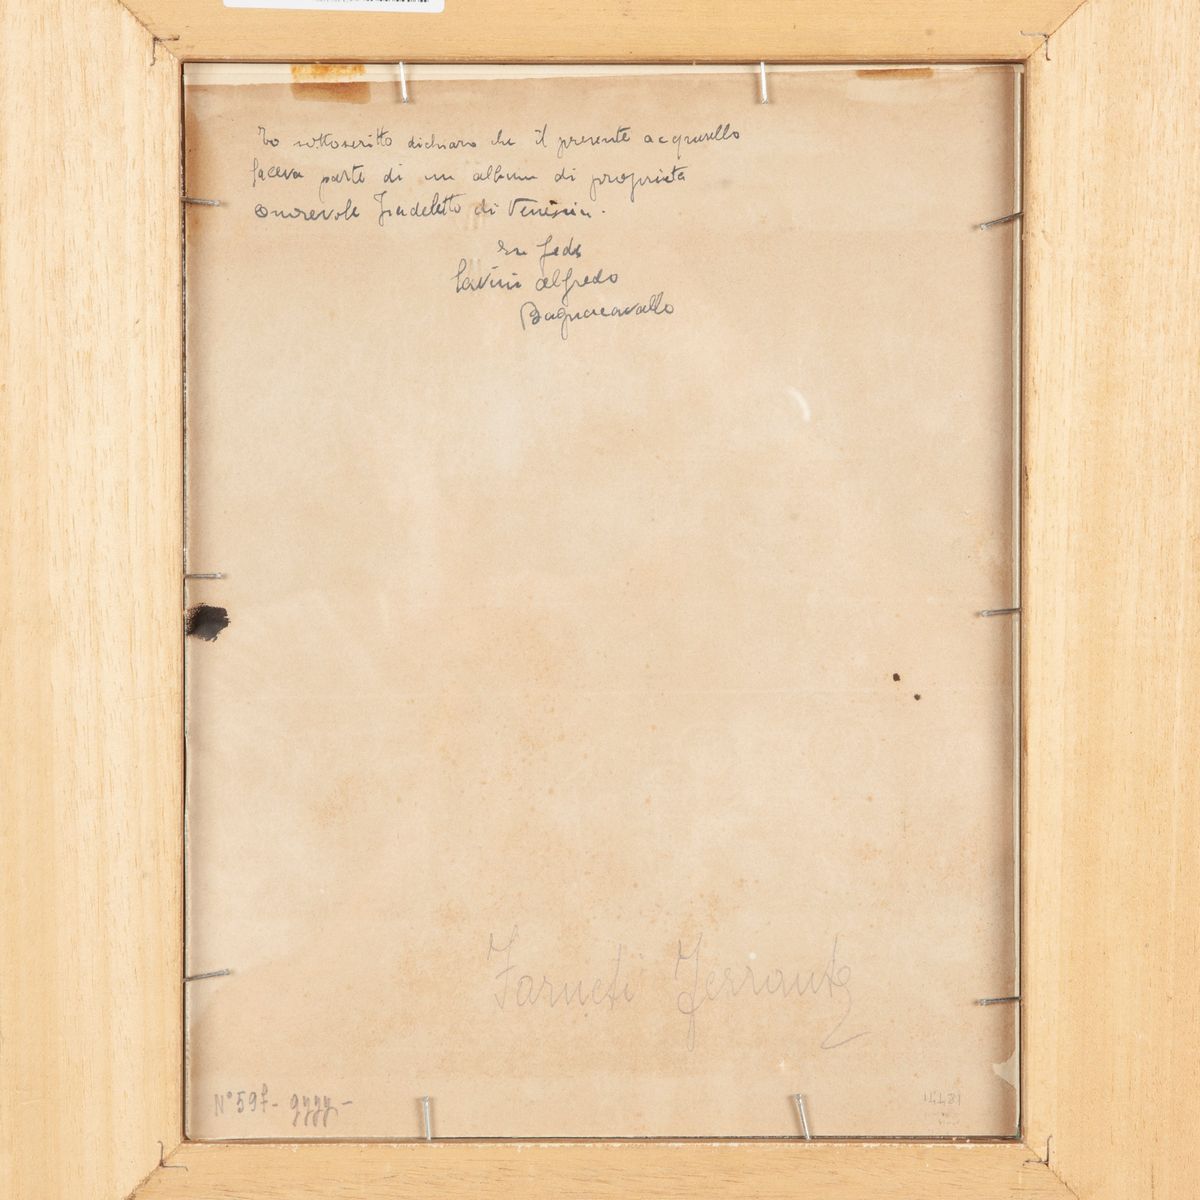 Io sottoscritto dichiaro che il presente acquarello
faceva parte di un album di proprieta
onorevole Fradeletto di Venezia.
In fede
Savini Alfredo
Bagnacavallo
Farneti Ferrante
N° 597-